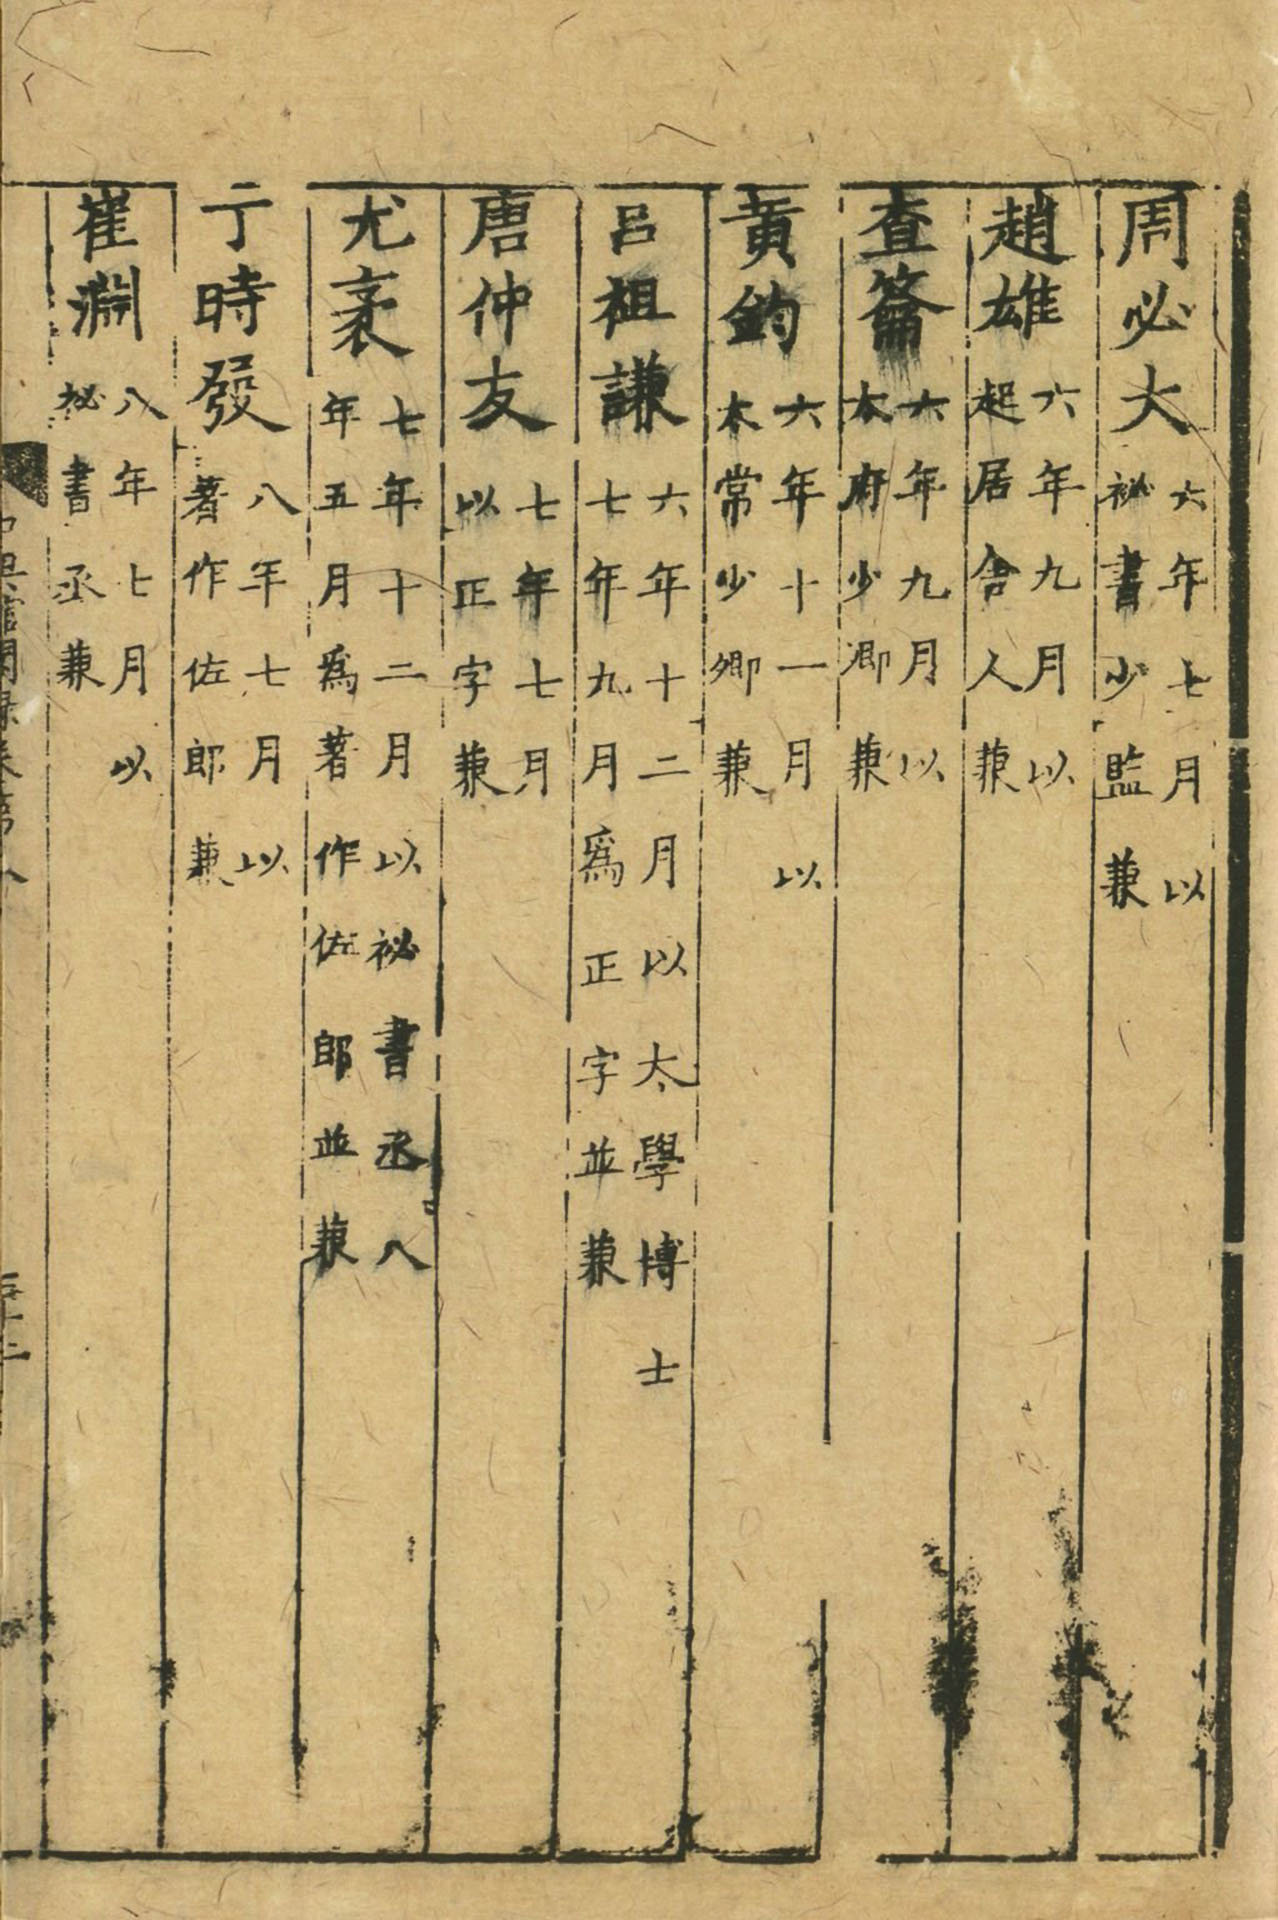 周必大六年七月以秘書少監兼
趙雄六年九月以起居舍人兼
查籥六年九月以太府少卿兼
黃鈞六年十一月以太常少卿兼
呂祖謙六年十二月以太學博士七年九月爲正字並兼
唐仲友七年七月以正字兼
尤袤七年十二月以祕書丞八年五月爲著作佐郎並兼
丁時發八年七月以著作佐郎兼
崔淵八年七月以祕書丞兼